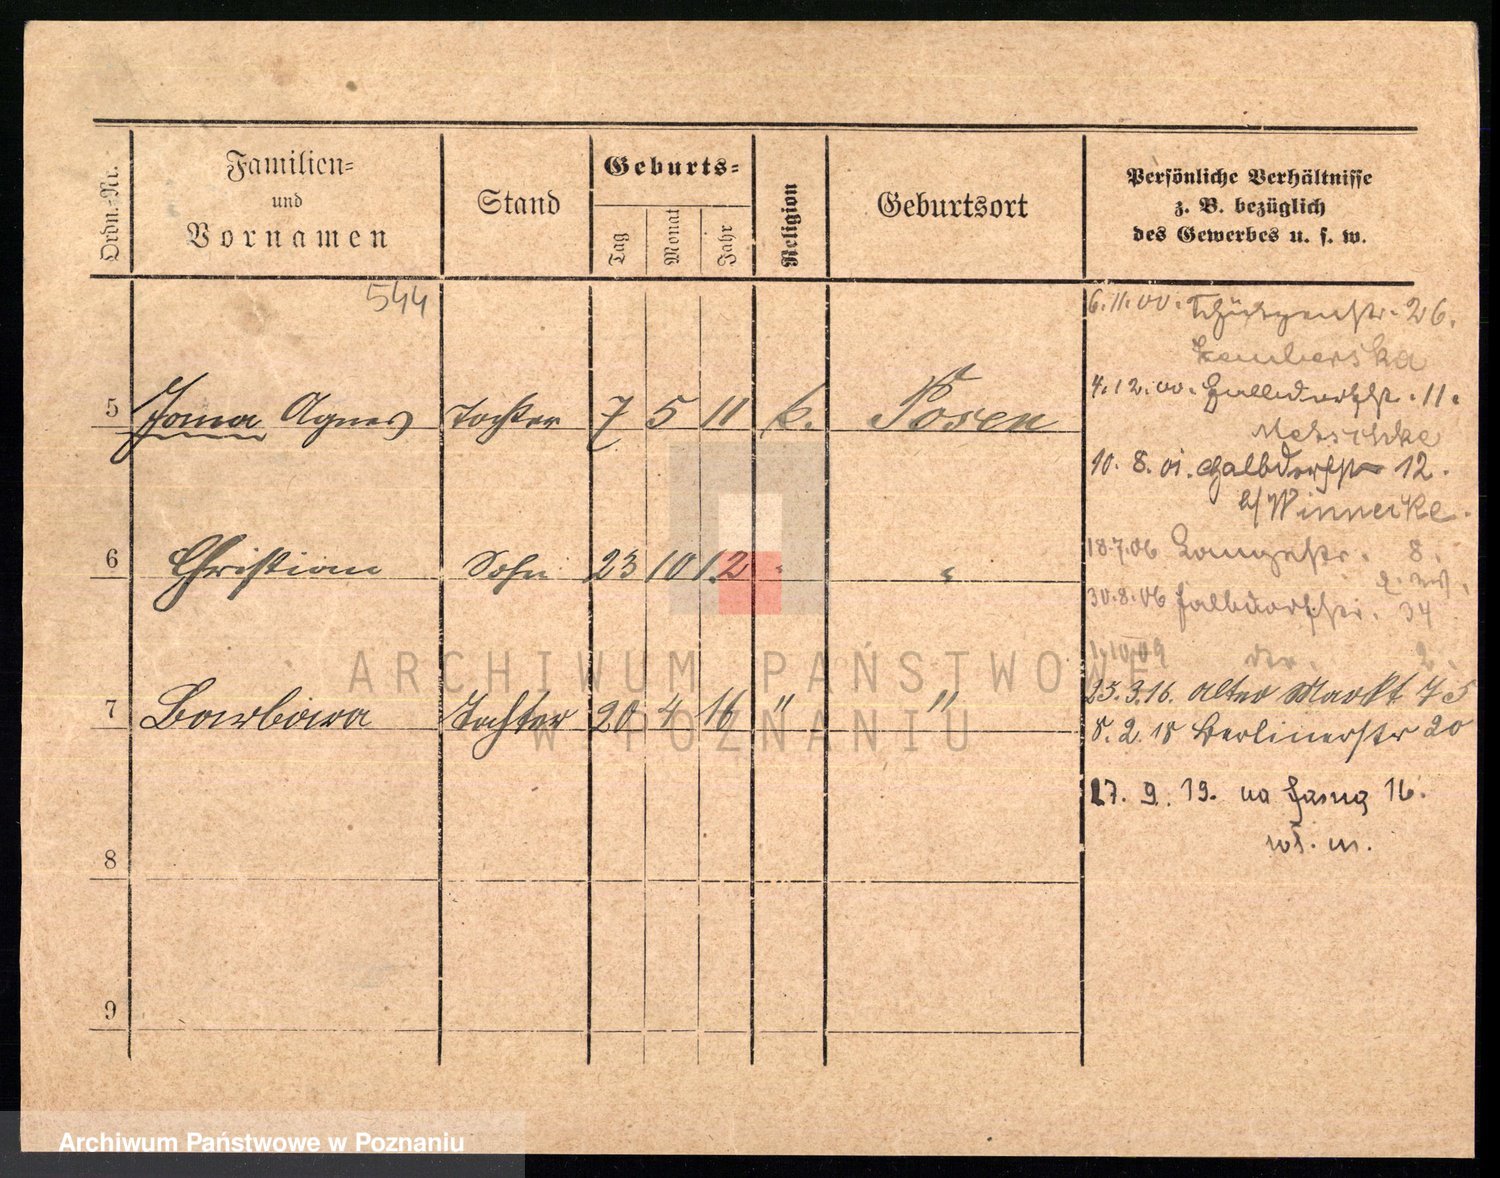 Ordn.-Nr.
Familien-
und
Vornamen
Stand
Geburts-
Tag
Monat
Jahr
Religion
Geburtsort
Persönliche Verhältnisse
z. B. bezüglich
des Gewerbes u. s. w.
544
5 Irma Agnes Tochter 7 5 11 k. Posen
6 Christian Sohn 23 10 12 " "
7 Barbara Tochter 20 4 16 " "
8
9
6.11.00. Schützenstr. 26.
4.12.00. Halbdorfstr. 11.
10. 8. 01. Halbdorfstr 12.
b/ Winnecke.
18.7.06 Langestr. 8.
30.8.06 Halbdorfstr. 34
1.10.09 2.
25.3.16. Alter Markt 75
8. 2. 18 Berlinerstr 20
27. 9. 19. na Jasną 16.
wł. m.
ARCHIWUM PAŃSTWOWE
W POZNANIU
Archiwum Państwowe w Poznaniu